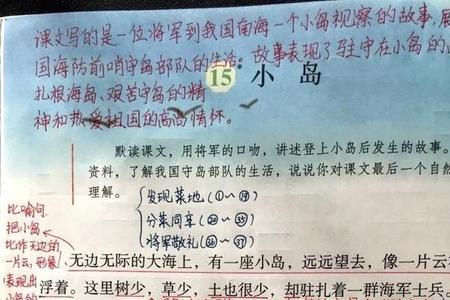 课文写的是一位将军到我国南海一个小岛视察的故事,展
国海防前哨守岛部队的生活。故事表现了驻守在小岛的
扎根海岛、艰苦守岛的精
神和热爱祖国的高尚情怀。
15* 小岛
默读课文,用将军的口吻,讲述登上小岛后发生的故事。
资料,了解我国守岛部队的生活,说说你对课文最后一个自然
理解。
发现菜地(①~⑲)
分菜同享(⑳~㉟)
将军敬礼(㊱~㊲)
比喻句
把小岛
比作天边的
一片云,形象
表现出
小岛的
无边无际的大海上,有一座小岛,远远望去,像一片云
浮着。这里树少,草少,土也很少,却驻扎着一群海军士兵。